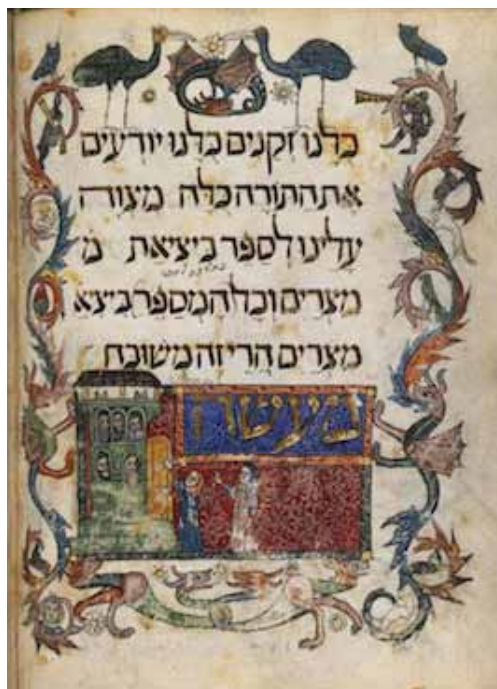 כלנו זקנים כלנו יודעים
את התורה כלה מצוה
עלינו לספר ביציאת מ
מצרים וכל המספר ביציא
מצרים הרי זה משובח